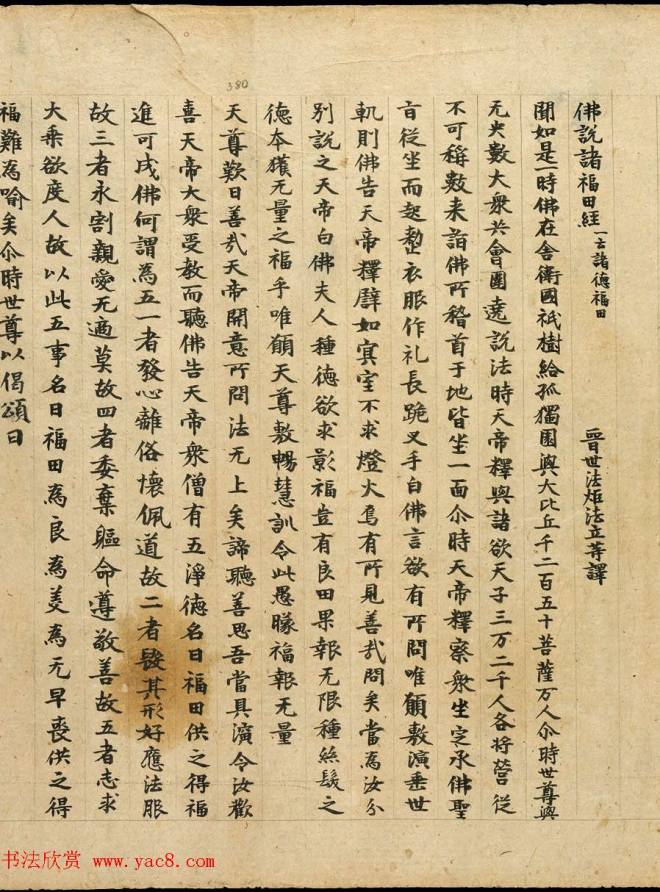 380
佛說諸福田經一云諸德福田 晉世法炬法立等譯
聞如是一時佛在舍衛國祇樹給孤獨園與大比丘千二百五十菩薩万人尒時世尊與
无央數大衆共會圍遶說法時天帝釋與諸欲天子三万二千人各將營從
不可稱數来詣佛所稽首于地皆坐一面尒時天帝釋察衆坐定承佛聖
旨從坐而起整衣服作礼長跪叉手白佛言欲有所問唯願敷演垂世
軌則佛告天帝釋譬如冥室不求燈火焉有所見善哉問矣當為汝分
別說之天帝白佛夫人種德欲求影福豈有良田果報无限種絲髮之
德本獲无量之福乎唯願天尊敷暢慧訓令此愚矇福報无量
天尊歎曰善哉天帝開意所問法无上矣諦聽善思吾當具演令汝歡
喜天帝大衆受教而聽佛告天帝衆僧有五淨德名曰福田供之得福
進可成佛何謂為五一者發心離俗懷佩道故二者毀其形好應法服
故三者永割親愛无適莫故四者委棄軀命遵敬善故五者志求
大乘欲度人故以此五事名曰福田為良為美為无早喪供之得
福難為喻矣尒時世尊以偈頌曰
书法欣赏 www.yac8.com